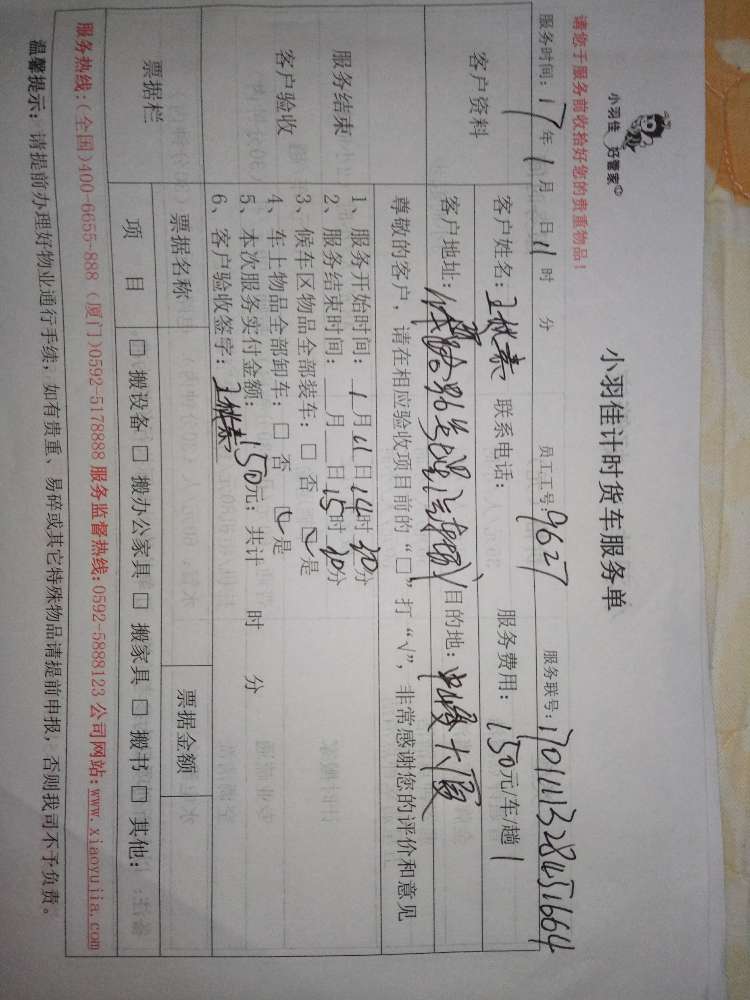 小羽佳 好管家
小羽佳计时货车服务单
请您于服务前收拾好您的贵重物品！
员工工号：9627 服务联号：1701111328451664
服务时间：17年1月 日11时 分
客户资料
客户姓名：王 联系电话： 服务费用：150元/车/趟
客户地址： 目的地：中骏大厦
尊敬的客户，请在相应验收项目前的“□”打“√”，非常感谢您的评价和意见
服务结束
客户验收
1、服务开始时间：1月11日14时30分
2、服务结束时间： 月 日15时30分
3、候车区物品全部装车：□ 否 ☑是
4、车上物品全部卸车：□ 否 ☑是
5、本次服务实付金额：150元；共计 时 分
6、客户验收签字：王
票据栏
票据名称 票据金额
项 目 □ 搬设备 □ 搬办公家具 □ 搬家具 □ 搬书 □ 其他：
服务热线：(全国)400-6655-888 (厦门)0592-5178888 服务监督热线：0592-5888123 公司网站：www.xiaoyujia.com
温馨提示：请提前办理好物业通行手续，如有贵重、易碎或其它特殊物品请提前申报，否则我司不予负责。